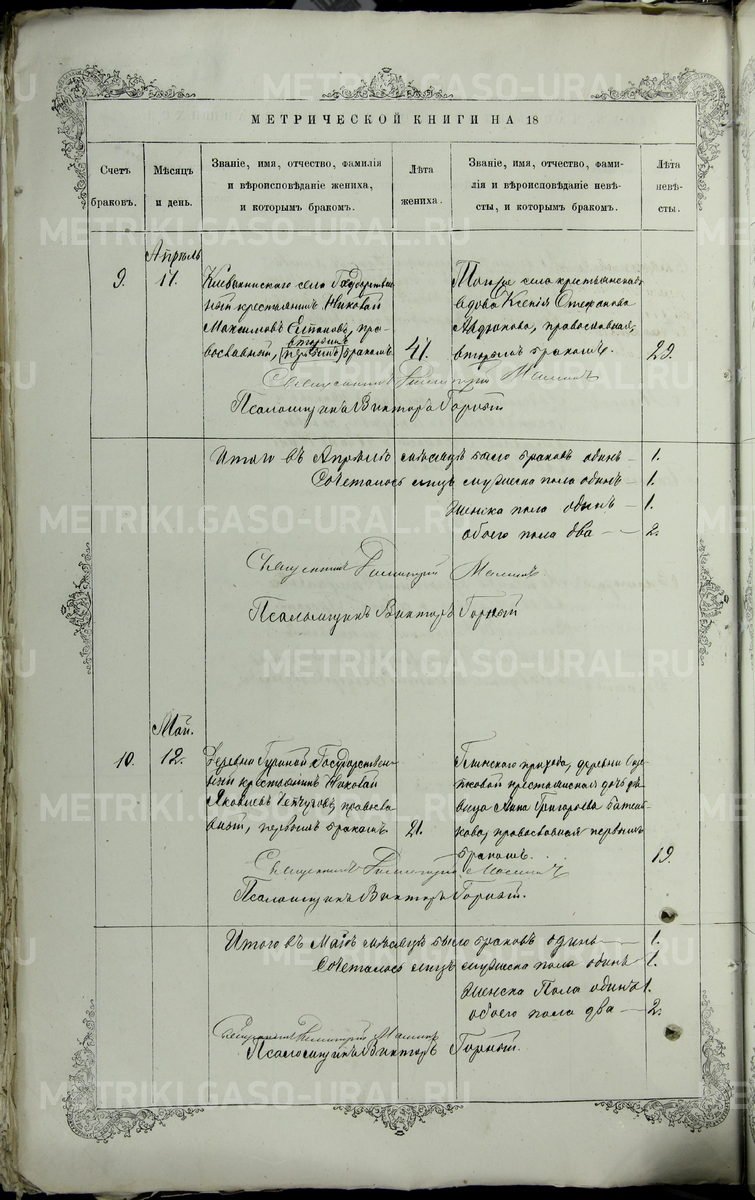 МЕТРИЧЕСКОЙ КНИГИ НА 18
Счетъ браковъ.
Мѣсяцъ и день.
Званіе, имя, отчество, фамилія
и вѣроисповѣданіе жениха,
и которымъ бракомъ.
Лѣта жениха.
Званіе, имя, отчество, фами-
лія и вѣроисповѣданіе невѣ-
сты, и которымъ бракомъ.
Лѣта невѣ-
сты.
Апрѣль
9.
17.
Клевакинскаго села Государствен-
ный крестьянинъ Николай
Максимовъ, пра-
вторымъ
вославный, первымъ бракомъ
41.
Того же села крестьянская
вдова Ксенія Стефанова
православная,
вторымъ бракомъ.
29.
Священникъ Димитрій
Псаломщикъ Викторъ Горный
Итого въ Апрѣлѣ мѣсяцѣ было браковъ одинъ — 1.
Сочеталось лицъ мужеска пола одинъ — 1.
женска пола одинъ — 1.
обоего пола два — 2.
Священникъ Димитрій
Псаломщикъ Викторъ Горный
Май.
10.
12.
Деревни Гуриной Государствен-
ный крестьянинъ Николай
Яковлевъ Чепчуговъ, правосла-
вный, первымъ бракомъ
21.
Глинскаго прихода, деревни
крестьянская дочь дѣ-
вица Анна Григорьева
кова, православная первымъ
бракомъ.
19.
Священникъ Димитрій
Псаломщикъ Викторъ Горный.
Итого въ Маѣ мѣсяцѣ было браковъ одинъ — 1.
Сочеталось лицъ мужеска пола одинъ 1.
женска Пола одинъ 1.
обоего пола два — 2.
Священникъ Димитрій
Псаломщикъ Викторъ Горный.
METRIKI.GASO-URAL.RU